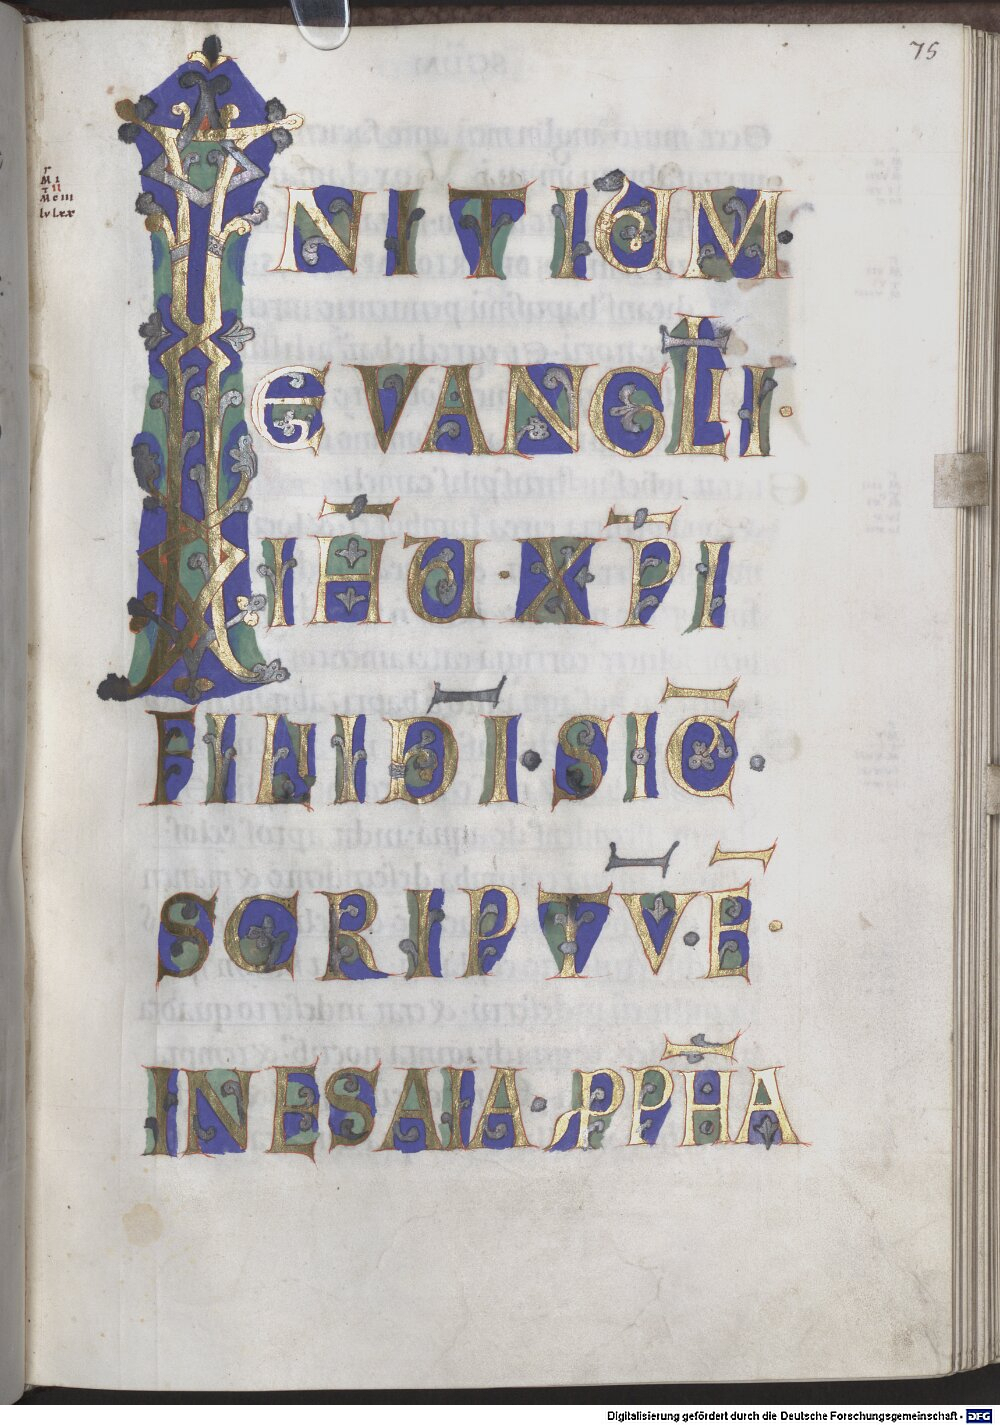 75
INITIUM·
EVANGLI·
IHU·XPI
FILII DI·SIC·
SCRIPTV·E·
IN ESAIA·PPHA
Digitalisierung gefördert durch die Deutsche Forschungsgemeinschaft - DFG